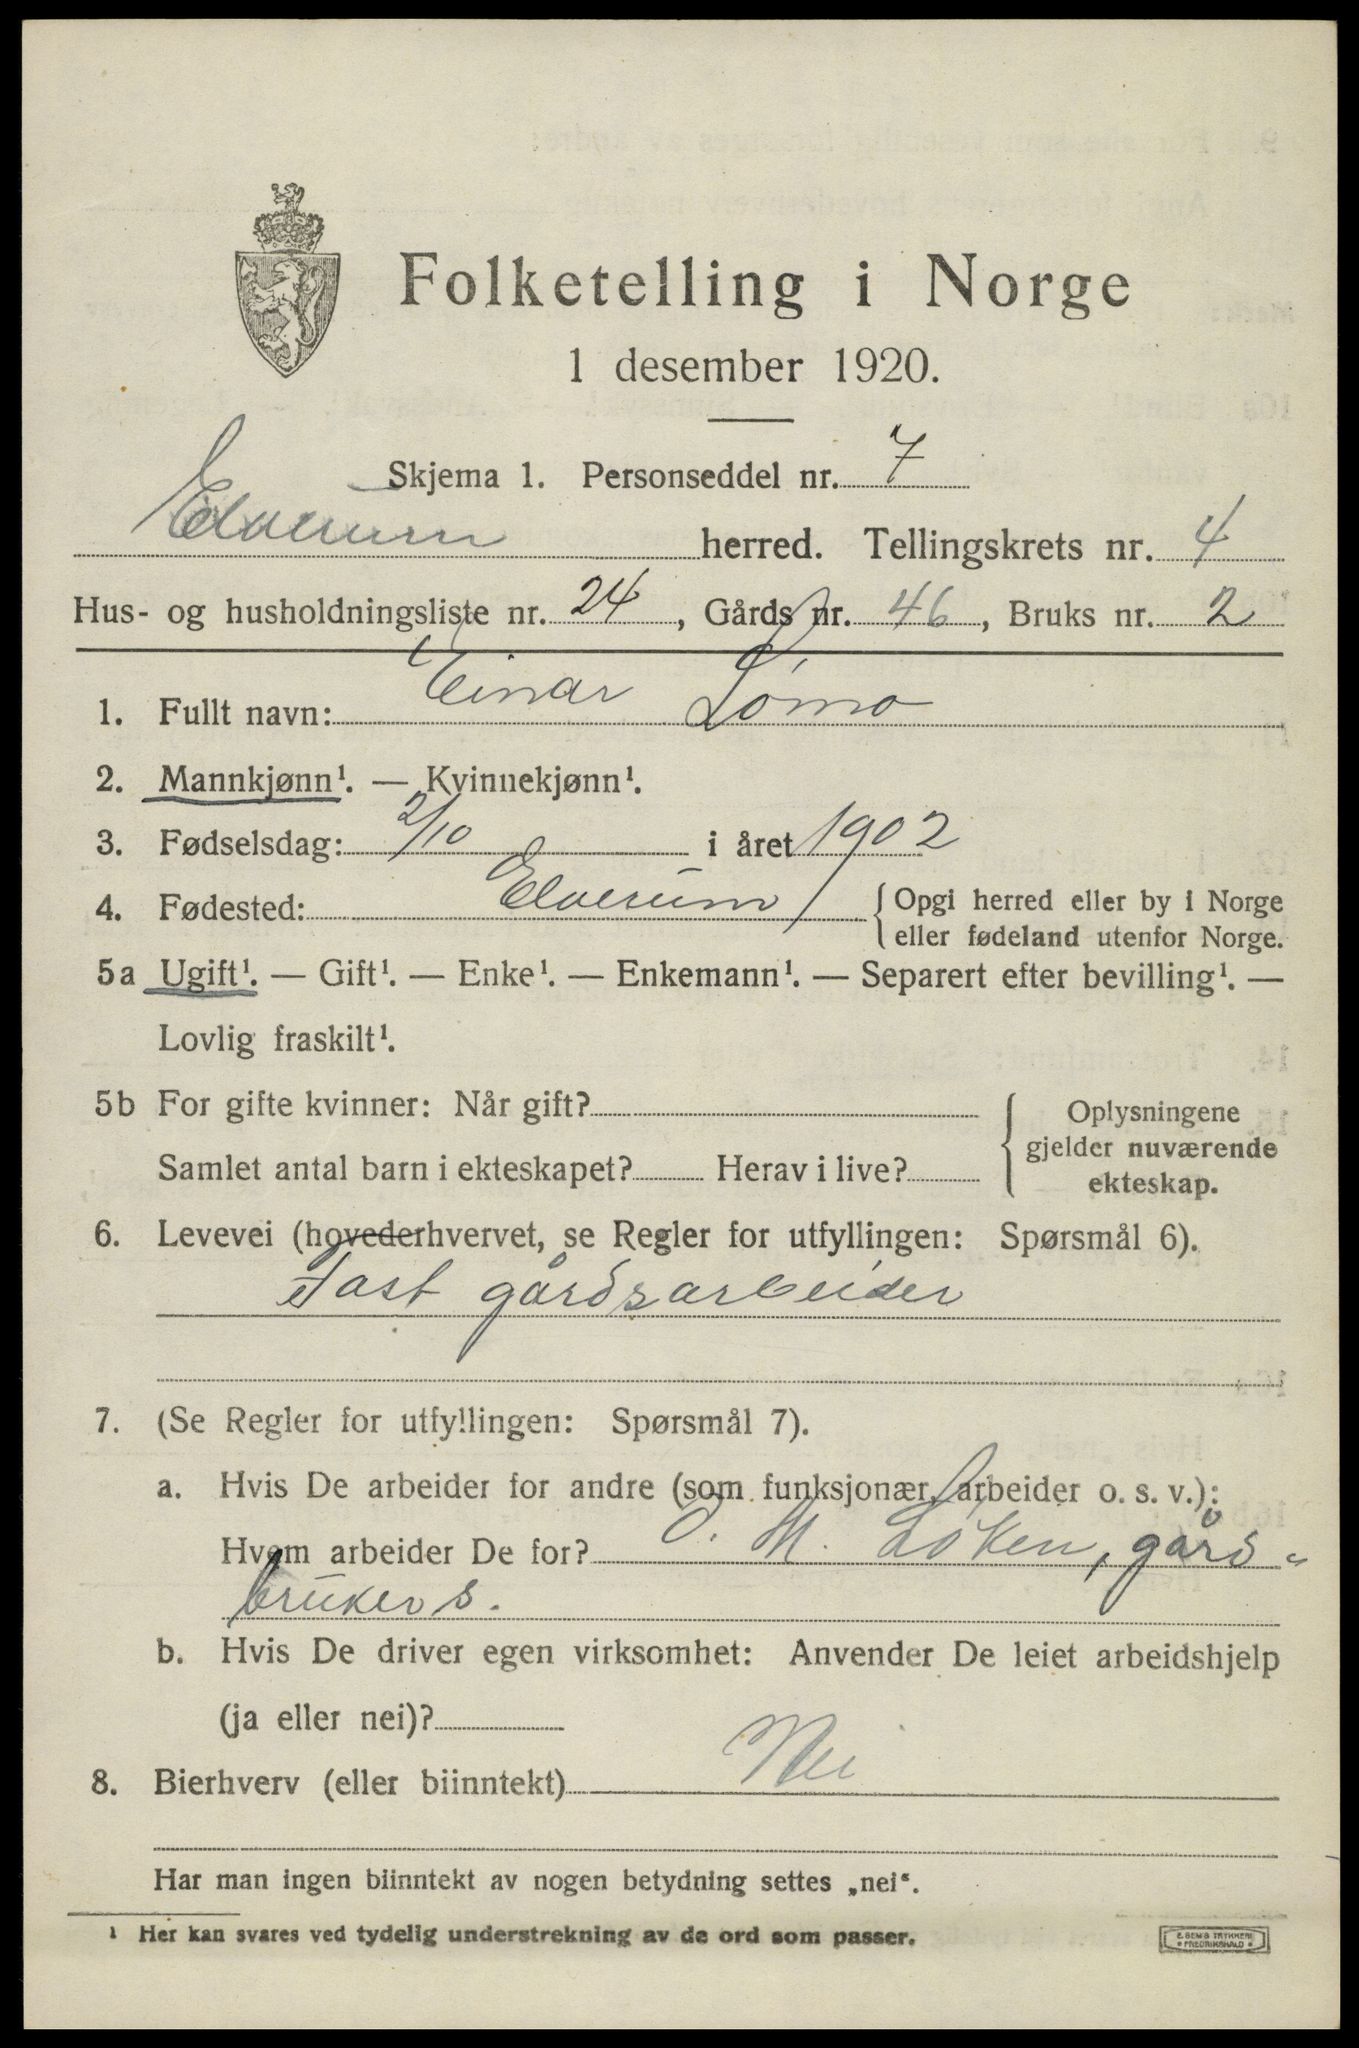 Folketelling i Norge
1 desember 1920.
Skjema 1. Personseddel nr. 7
Elverum herred. Tellingskrets nr. 4
Hus- og husholdningsliste nr. 24, Gårds nr. 46, Bruks nr. 2
1. Fullt navn: Einar Lømo
2. Mannkjønn¹. — Kvinnekjønn¹.
3. Fødselsdag: 2/10 i året 1902
4. Fødested: Elverum { Opgi herred eller by i Norge
eller fødeland utenfor Norge.
5a Ugift¹. — Gift¹. — Enke¹. — Enkemann¹. — Separert efter bevilling¹. —
Lovlig fraskilt¹.
5b For gifte kvinner: Når gift? { Oplysningene
gjelder nuværende
Samlet antal barn i ekteskapet? Herav i live?
ekteskap.
6. Levevei (hovederhvervet, se Regler for utfyllingen: Spørsmål 6).
Fast gårdsarbeider
7. (Se Regler for utfyllingen: Spørsmål 7).
a. Hvis De arbeider for andre (som funksjonær, arbeider o. s. v.):
Hvem arbeider De for? O. M. Løken, gårds-
brukers.
b. Hvis De driver egen virksomhet: Anvender De leiet arbeidshjelp
(ja eller nei)?
8. Bierhverv (eller biinntekt) Nei
Har man ingen biinntekt av nogen betydning settes „nei“.
¹ Her kan svares ved tydelig understrekning av de ord som passer.
E. SEMS TRYKKERI
FREDRIKSHALD